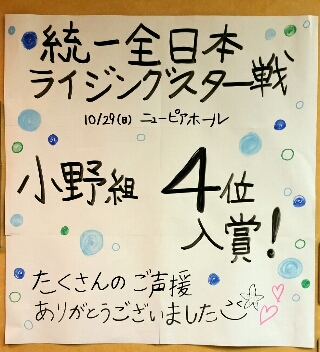 統一全日本
ライジングスター戦
10/29(日) ニューピアホール
小野組 4位
入賞!
たくさんのご声援
ありがとうございました